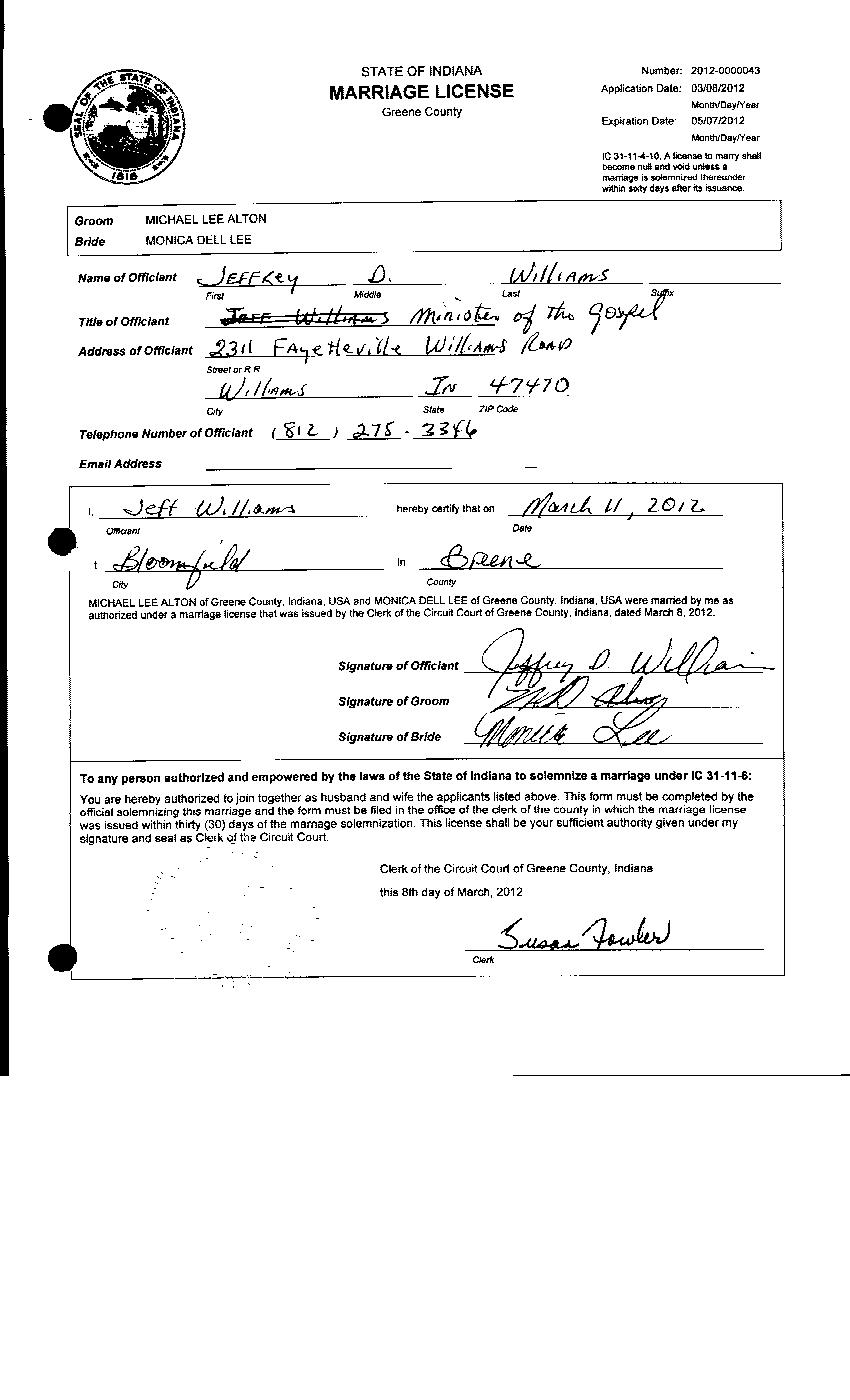 SEAL OF THE STATE OF INDIANA
1816
STATE OF INDIANA
MARRIAGE LICENSE
Greene County
Number: 2012-0000043
Application Date: 03/08/2012
Month/Day/Year
Expiration Date: 05/07/2012
Month/Day/Year
IC 31-11-4-10, A license to marry shall
become null and void unless a
marriage is solemnized thereunder
within sixty days after its issuance.
Groom MICHAEL LEE ALTON
Bride MONICA DELL LEE
Name of Officiant JEFFREY D. Williams
First Middle Last Suffix
Title of Officiant Jeff Williams Minister of the Gospel
Address of Officiant 2311 FAyetteville Williams ROAD
Street or R R
Williams IN 47470
City State ZIP Code
Telephone Number of Officiant (812) 275-3346
Email Address
I, Jeff Williams hereby certify that on March 11, 2012
Officiant Date
t Bloomfield in Greene
City County
MICHAEL LEE ALTON of Greene County, Indiana, USA and MONICA DELL LEE of Greene County, Indiana, USA were married by me as
authorized under a marriage license that was issued by the Clerk of the Circuit Court of Greene County, Indiana, dated March 8, 2012.
Signature of Officiant Jeffrey D. William
Signature of Groom
Signature of Bride Monica Lee
To any person authorized and empowered by the laws of the State of Indiana to solemnize a marriage under IC 31-11-6:
You are hereby authorized to join together as husband and wife the applicants listed above. This form must be completed by the
official solemnizing this marriage and the form must be filed in the office of the clerk of the county in which the marriage license
was issued within thirty (30) days of the marriage solemnization. This license shall be your sufficient authority given under my
signature and seal as Clerk of the Circuit Court.
Clerk of the Circuit Court of Greene County, Indiana
this 8th day of March, 2012
Susan Fowler
Clerk